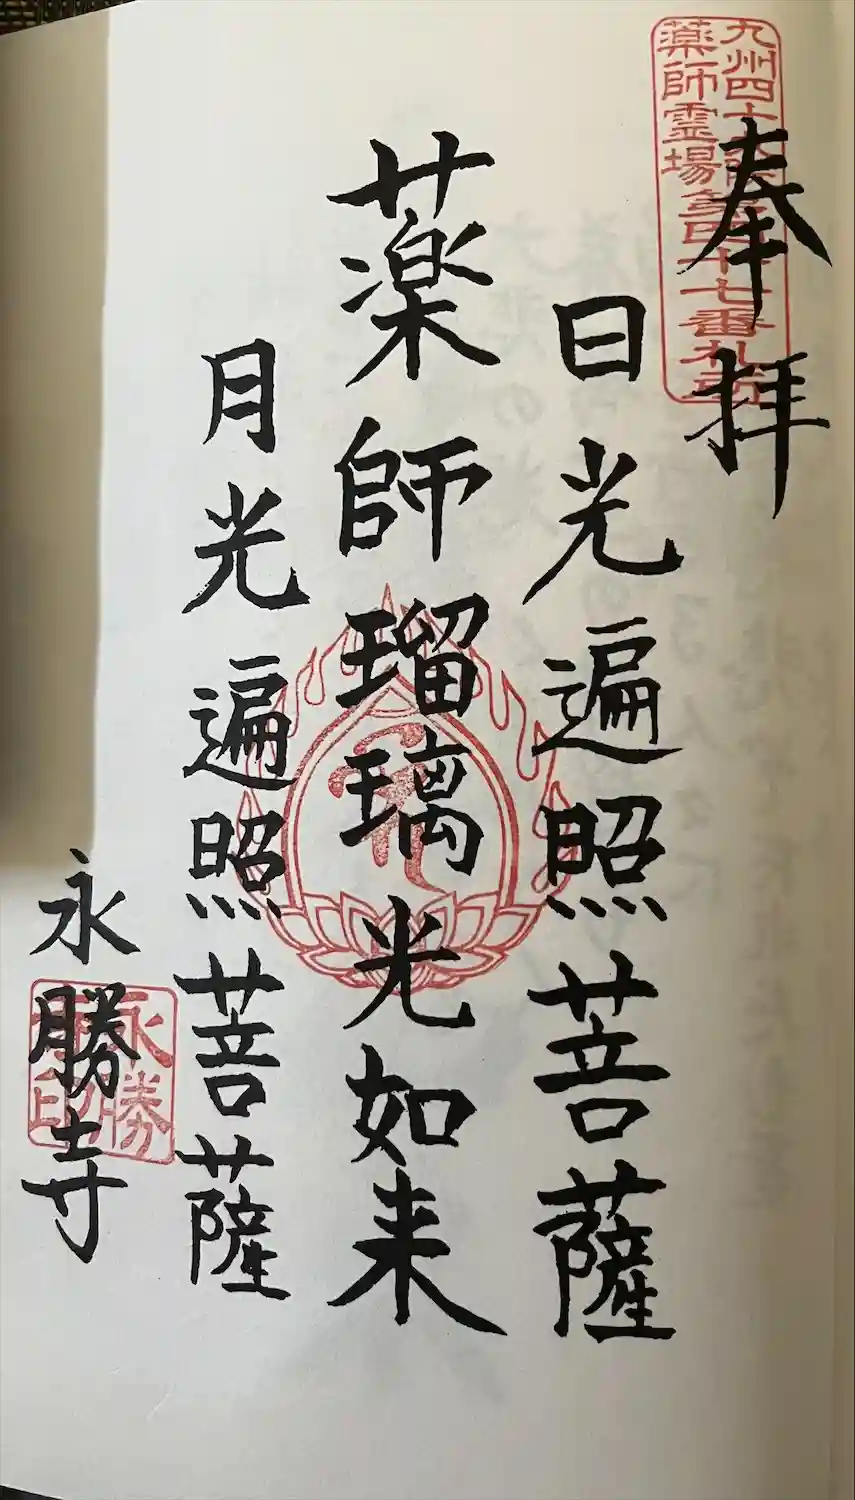 奉拝
九州四十九院
薬師霊場第四十七番札所
日光遍照菩薩
薬師瑠璃光如来
月光遍照菩薩
永勝寺
永勝
寺印